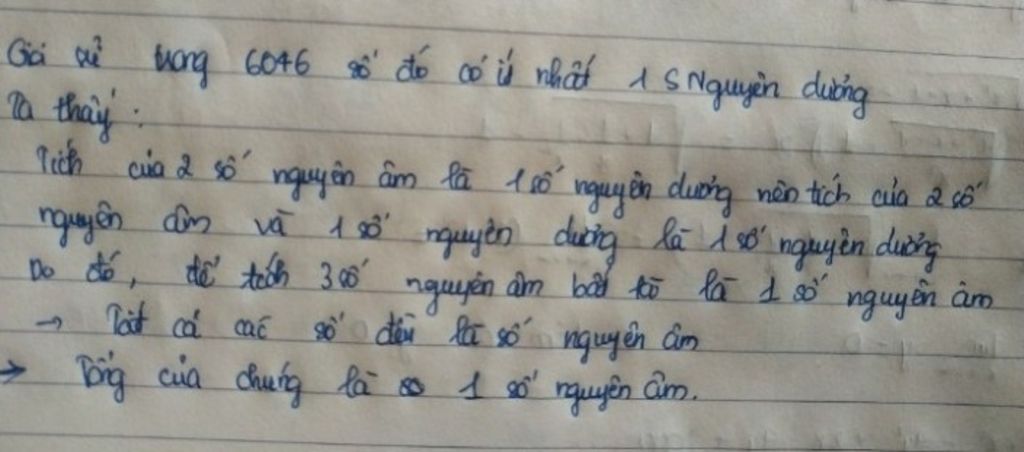 Giả sử trong 6046 số đó có ít nhất 1 S Nguyên dương
Ta thấy :
Tích của 2 số nguyên âm là 1 số nguyên dương nên tích của 2 số
nguyên âm và 1 số nguyên dương là 1 số nguyên dương
Do đó, để tích 3 số nguyên âm bất kì là 1 số nguyên âm
→ Tất cả các số đều là số nguyên âm
→ Tổng của chúng là 1 số nguyên âm.